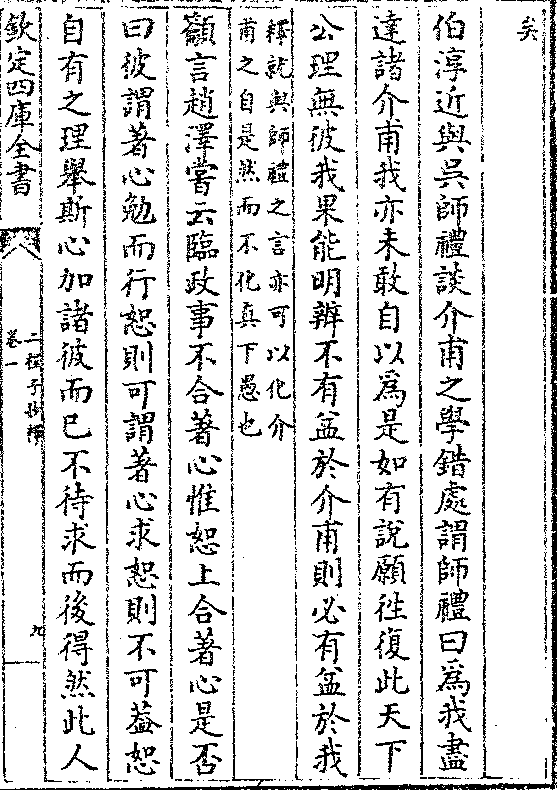 矣
伯淳近與吳師禮談介甫之學錯處謂師禮曰為我盡
達諸介甫我亦未敢自以為是如有說願徃復此天下
公理無彼我果能明辨不有益於介甫則必有益於我
釋就與師禮之言亦可以化介
甫之自是然而不化真下愚也
籲言趙澤嘗云臨政事不合著心惟恕上合著心是否
曰彼謂著心勉而行恕則可謂著心求恕則不可葢恕
自有之理舉斯心加諸彼而已不待求而後得然此人
欽定四庫全書
二程子抄釋
卷一
九